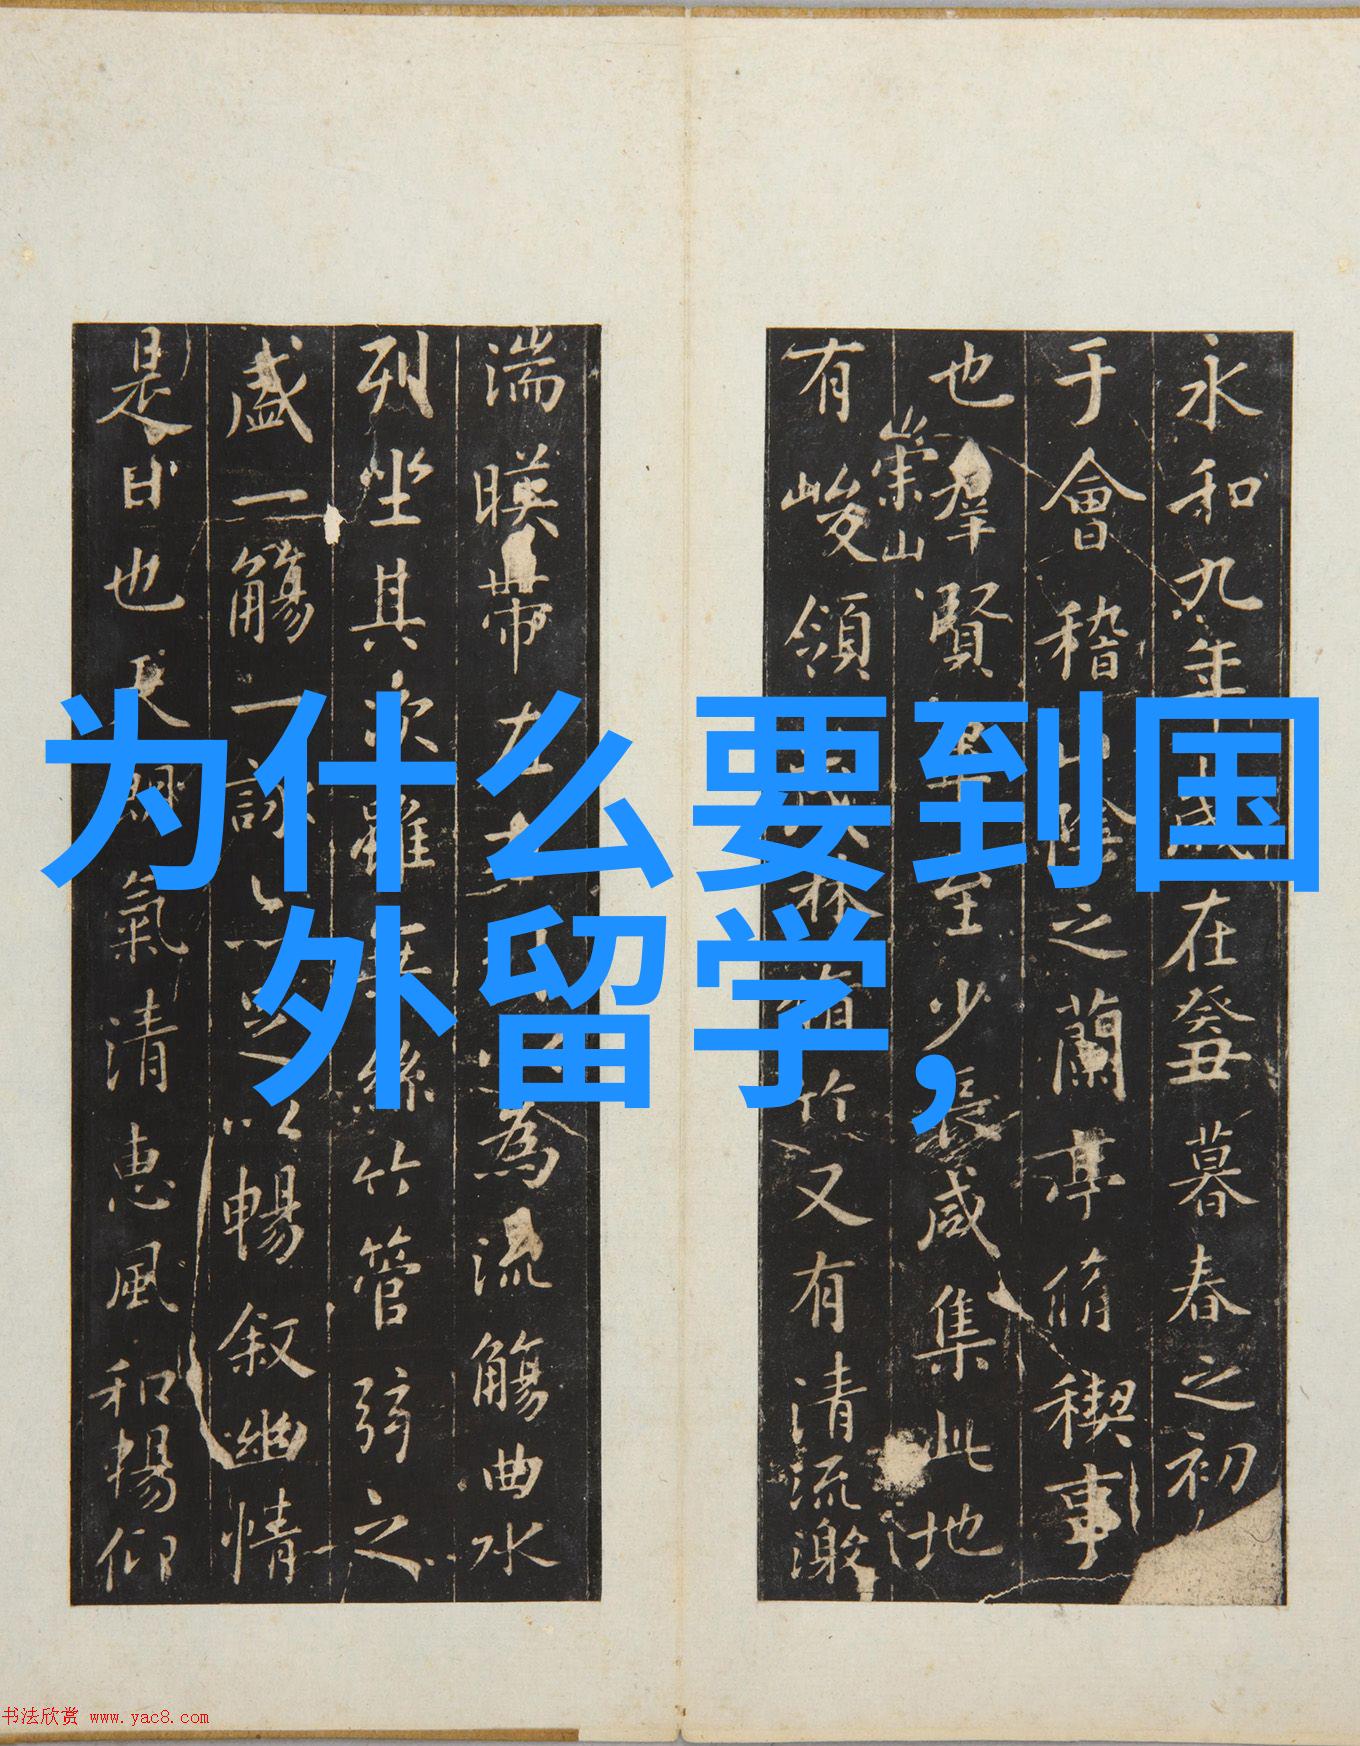 为什么要到国
外留学,
永和九年歲在癸丑暮春之初
于會稽山陰之蘭亭脩稧事
也羣賢畢至少長咸集此地
崇山
有峻領茂林脩竹又有清流激
湍暎帶左為流觴曲水
列坐其次雖無絲竹管弦之
盛一觴一詠亦足以暢叙幽情
是日也天朗氣清惠風和暢仰
书法欣赏 www.yac8.com